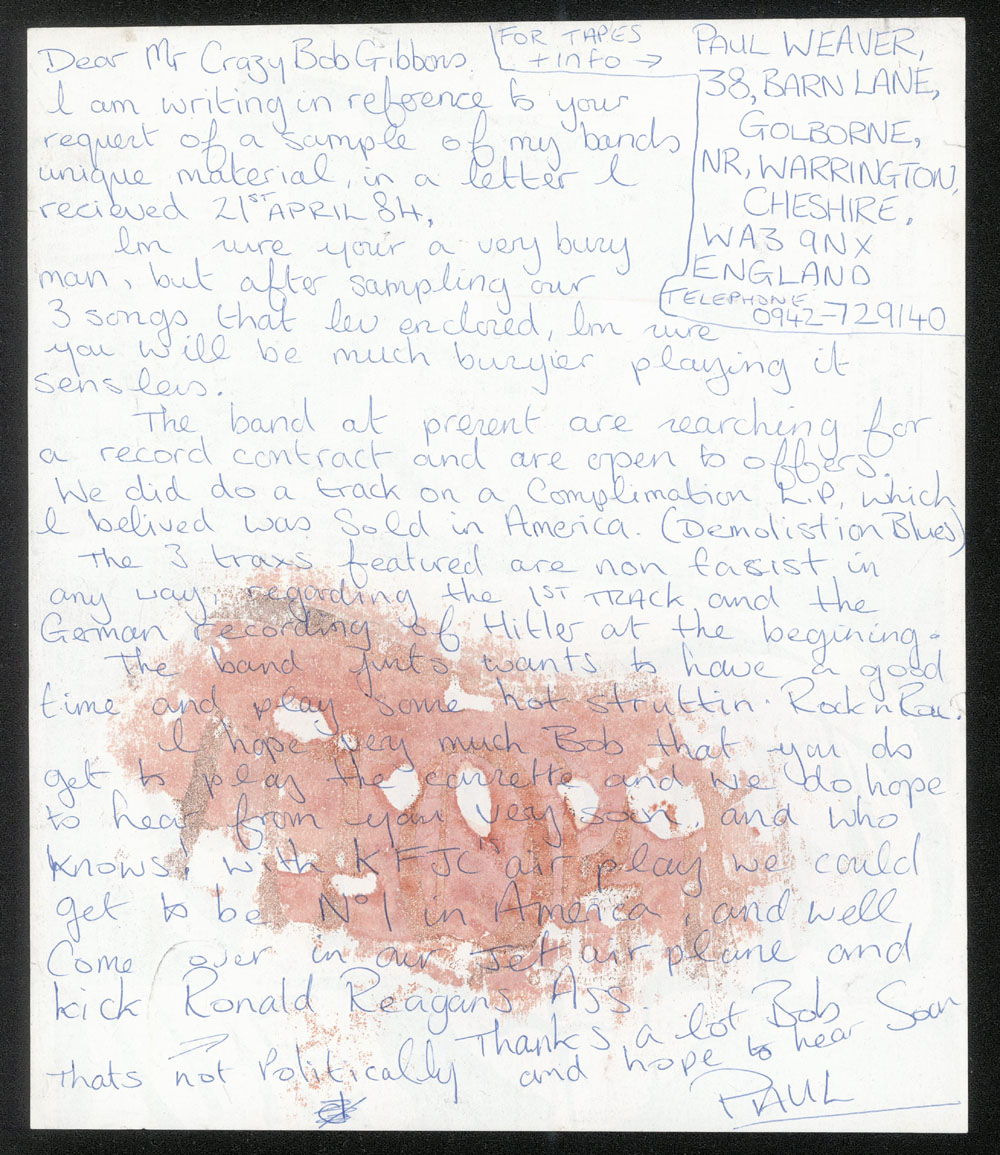 Dear Mr Crazy Bob Gibbons
FOR TAPES
+ info →
PAUL WEAVER,
38, BARN LANE,
GOLBORNE,
NR, WARRINGTON,
CHESHIRE,
WA3 9NX
ENGLAND
TELEPHONE
0942-729140
I am writing in reference to your
request of a sample of my bands
unique material, in a letter I
recieved 21ST APRIL 84,
Im sure your a very buzy
man, but after sampling our
3 songs that Iev enclosed, Im sure
you will be much buzyier playing it
sensless.
The band at present are searching for
a record contract and are open to offers.
We did do a track on a Complimation L.P, which
I belived was Sold in America. (Demolistion Blues)
The 3 traxs featured are non fasist in
any way, regarding the 1ST TRACK and the
German recording of Hitler at the begining.
The band juts wants to have a good
time and play some hot struttin. Rock n Roll.
I hope very much Bob that you do
get to play the cassette and we do hope
to hear from you very soon, and who
knows! with KFJC air play we could
get to be No 1 in America, and well
Come over in our Jet air plane and
kick Ronald Reagans Ass.
Thats not Politically
Thanks a lot Bob
and hope to hear Soon
PAUL